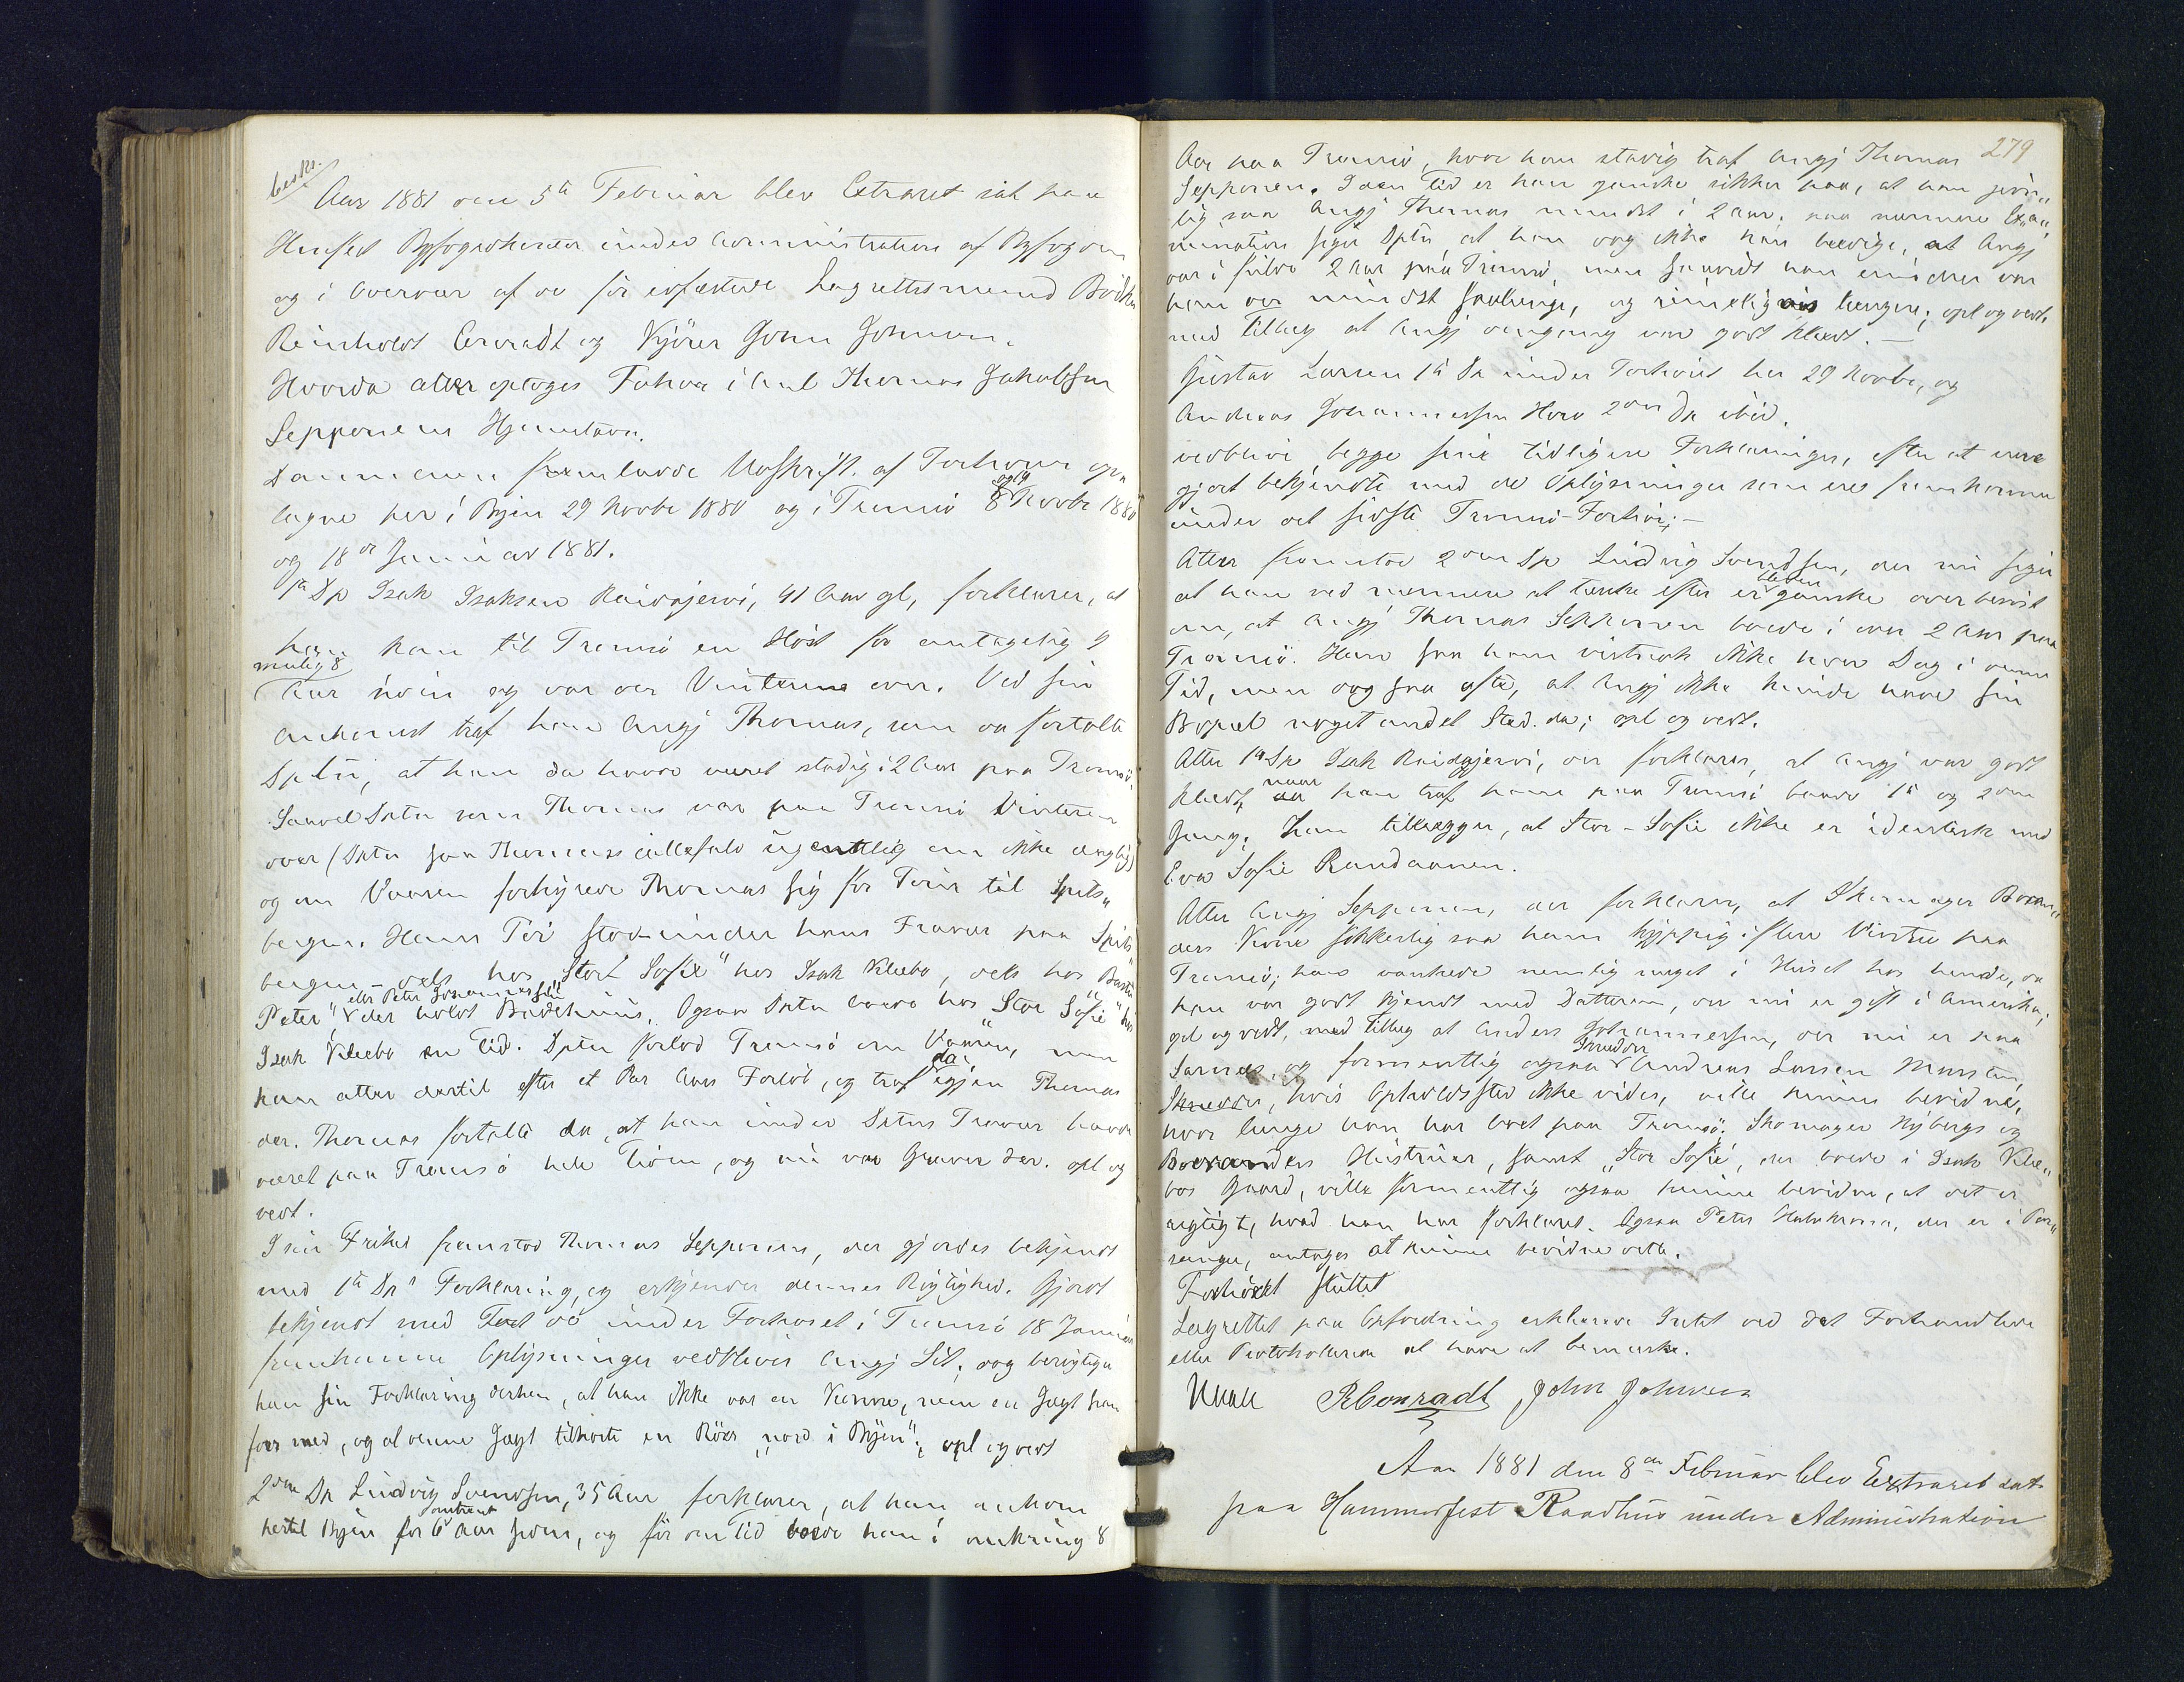 beskr.
Aar 1881 den 5te Februar blev Extraret sat paa
Hmfest Byfogedkontor under Administration af Byfogden
og i Overvær af de før edfæstede Lagrettesmænd Bødker
Reinholdt Conradt og Kjører John Johnsen.
Hvorda atter optoges Forhør i Anl Thomas Jakobsen
Sepponens Hjemstavn.
Dommeren fremlagde Udskrift af Forhører op„
tagne her i Byen 29 Novbr 1880 og i Tromsø 8 og 19 Novbr 1880
og 18de Januar 1881.
1ste Dp Isak Isaksen Raidajervi, 41 Aar gl, forklarer, at
han kom til Tromsø en Høst for antagelig 9
mulig 8
Aar siden og var der Vinteren over. Ved sin
Ankomst traf han Angj Thomas, som da fortalte
Dptn, at han da havde været stadig i 2 Aar paa Tromsø.
Saavel Dptn som Thomas var paa Tromsø Vinteren
over (Dptn saa Thomas i alfald ugentlig om ikke daglig)
og om Vaaren forhyrede Thomas sig for Tour til Spits„
bergen. Hans Tøi stod under hans Fravær paa Spits„
bergen dels hos „Stor Sofie" hos Isak Klæbo, dels hos „Bastu
Peter" eller Peter Johannessen der holdt Badehuus. Ogsaa Dptn boede hos Stor Sofie" hos
Isak Klæbo en Tid. Dptn forlod Tromsø om Vaaren, men
kom atter dertil efter et Par Aars Forløb, og traf da igjen Thomas
der. Thomas fortalte da, at han under Dptns Fravær havde
været paa Tromsø hele Tiden, og nu var Graver der. opl og
vedt.
I sin Frihed fremstod Thomas Sepponen, der gjordes bekjendt
med 1ste Dps Forklaring, og erkjender dennes Rigtighed. Gjort
bekjendt med de under Forhøret i Tromsø 18 Januar
fremkomne Oplysninger vedbliver Angj Sit, dog berigtiger
han sin Forklaring derhen, at han ikke var en Kvæn, men en Jagt han
foer med, og at denne Jagt tilhørte en Röer „nord i Byen"; opl og vedt
2den Dp Ludvig Svendsen, 35 Aar forklarer, at han ankom
hertil Byen for omtrent 6 Aar siden, og før den Tid boede han i omkring 8
279
Aar paa Tromsø, hvor han stadig traf Angj Thomas
Sepponen. I den Tid er han ganske sikker paa, at han jevn„
lig saa Angj Thomas mindst i 2 Aar. paa nærmere Exa„
mination siger Dptn, at han dog ikke kan beedige, at Angj
var i fulde 2 Aar paa Tromsø, men saavidt han erindrer var
han der mindst saalænge, og rimeligvis længere; opl og vedt.
med Tillæg at Angj dengang var godt klædt. —
Gustav Larsen 1ste Dp under Forhøret her 29 Novbr, og
Andreas Johannessen Horv 2den Dp ibid.
vedblive begge sine tidligere Forklaringer, efter at være
gjort bekjendte med de Oplysninger som ere fremkomne
under det sidste Tromsø-Forhør; —
Atter fremstod 2den Dp Ludvig Svendsen, der nu siger
at han ved nærmere at tænke efter er bleven ganske overbevist
om, at Angj Thomas Sepponen boede i over 2 Aar paa
Tromsø. Han saa ham vistnok ikke hver Dag i denne
Tid, men dog saa ofte, at Angj ikke kunde have sin
Bopæl noget andet Sted da; opl og vedt.
Atter 1ste Dp Isak Raidajervi, der forklarer, at Angj var godt
klædt, naar han traf ham paa Tromsø baade 1ste og 2den
Gang. Han tillægger, at Stor-Sofie ikke er identisk med
Eva Sofie Randaanen.
Atter Angj Sepponen, der forklarer, at Skomager Boran„
ders Kone sikkerlig saa ham hyppig i flere Vintre paa
Tromsø; han vankede nemlig meget i Huset hos hende, da
han var godt kjendt med Datteren, der nu er gift i Amerika;
opl og vedt, med Tillæg at Anders Johannessen, der nu er paa
Sarnes, og formentlig ogsaa Snedker Andreas Larsen Marsten,
Skrædder, hvis Opholdssted ikke vides, ville kunne bevidne,
hvor længe han har boet paa Tromsø. Skomager Nybergs og
Boranders Hustruer, samt „Stor Sofie", der boede i Isak Klæ„
bos Gaard, ville formentlig ogsaa kunne bevidne, at det er
rigtigt, hvad han har forklaret. Ogsaa Peter Halvkrona, der er i Por„
sanger, antages at kunne bevidne dette.
Forhøret sluttet
Lagrettet paa Opfordring erklærede Intet ved det Forhandlede
eller Protokollerede at have at bemærke.
RConradt John Johnsen
Aar 1881 den 8de Februar blev Extraret sat
paa Hammerfest Raadhus under Administration